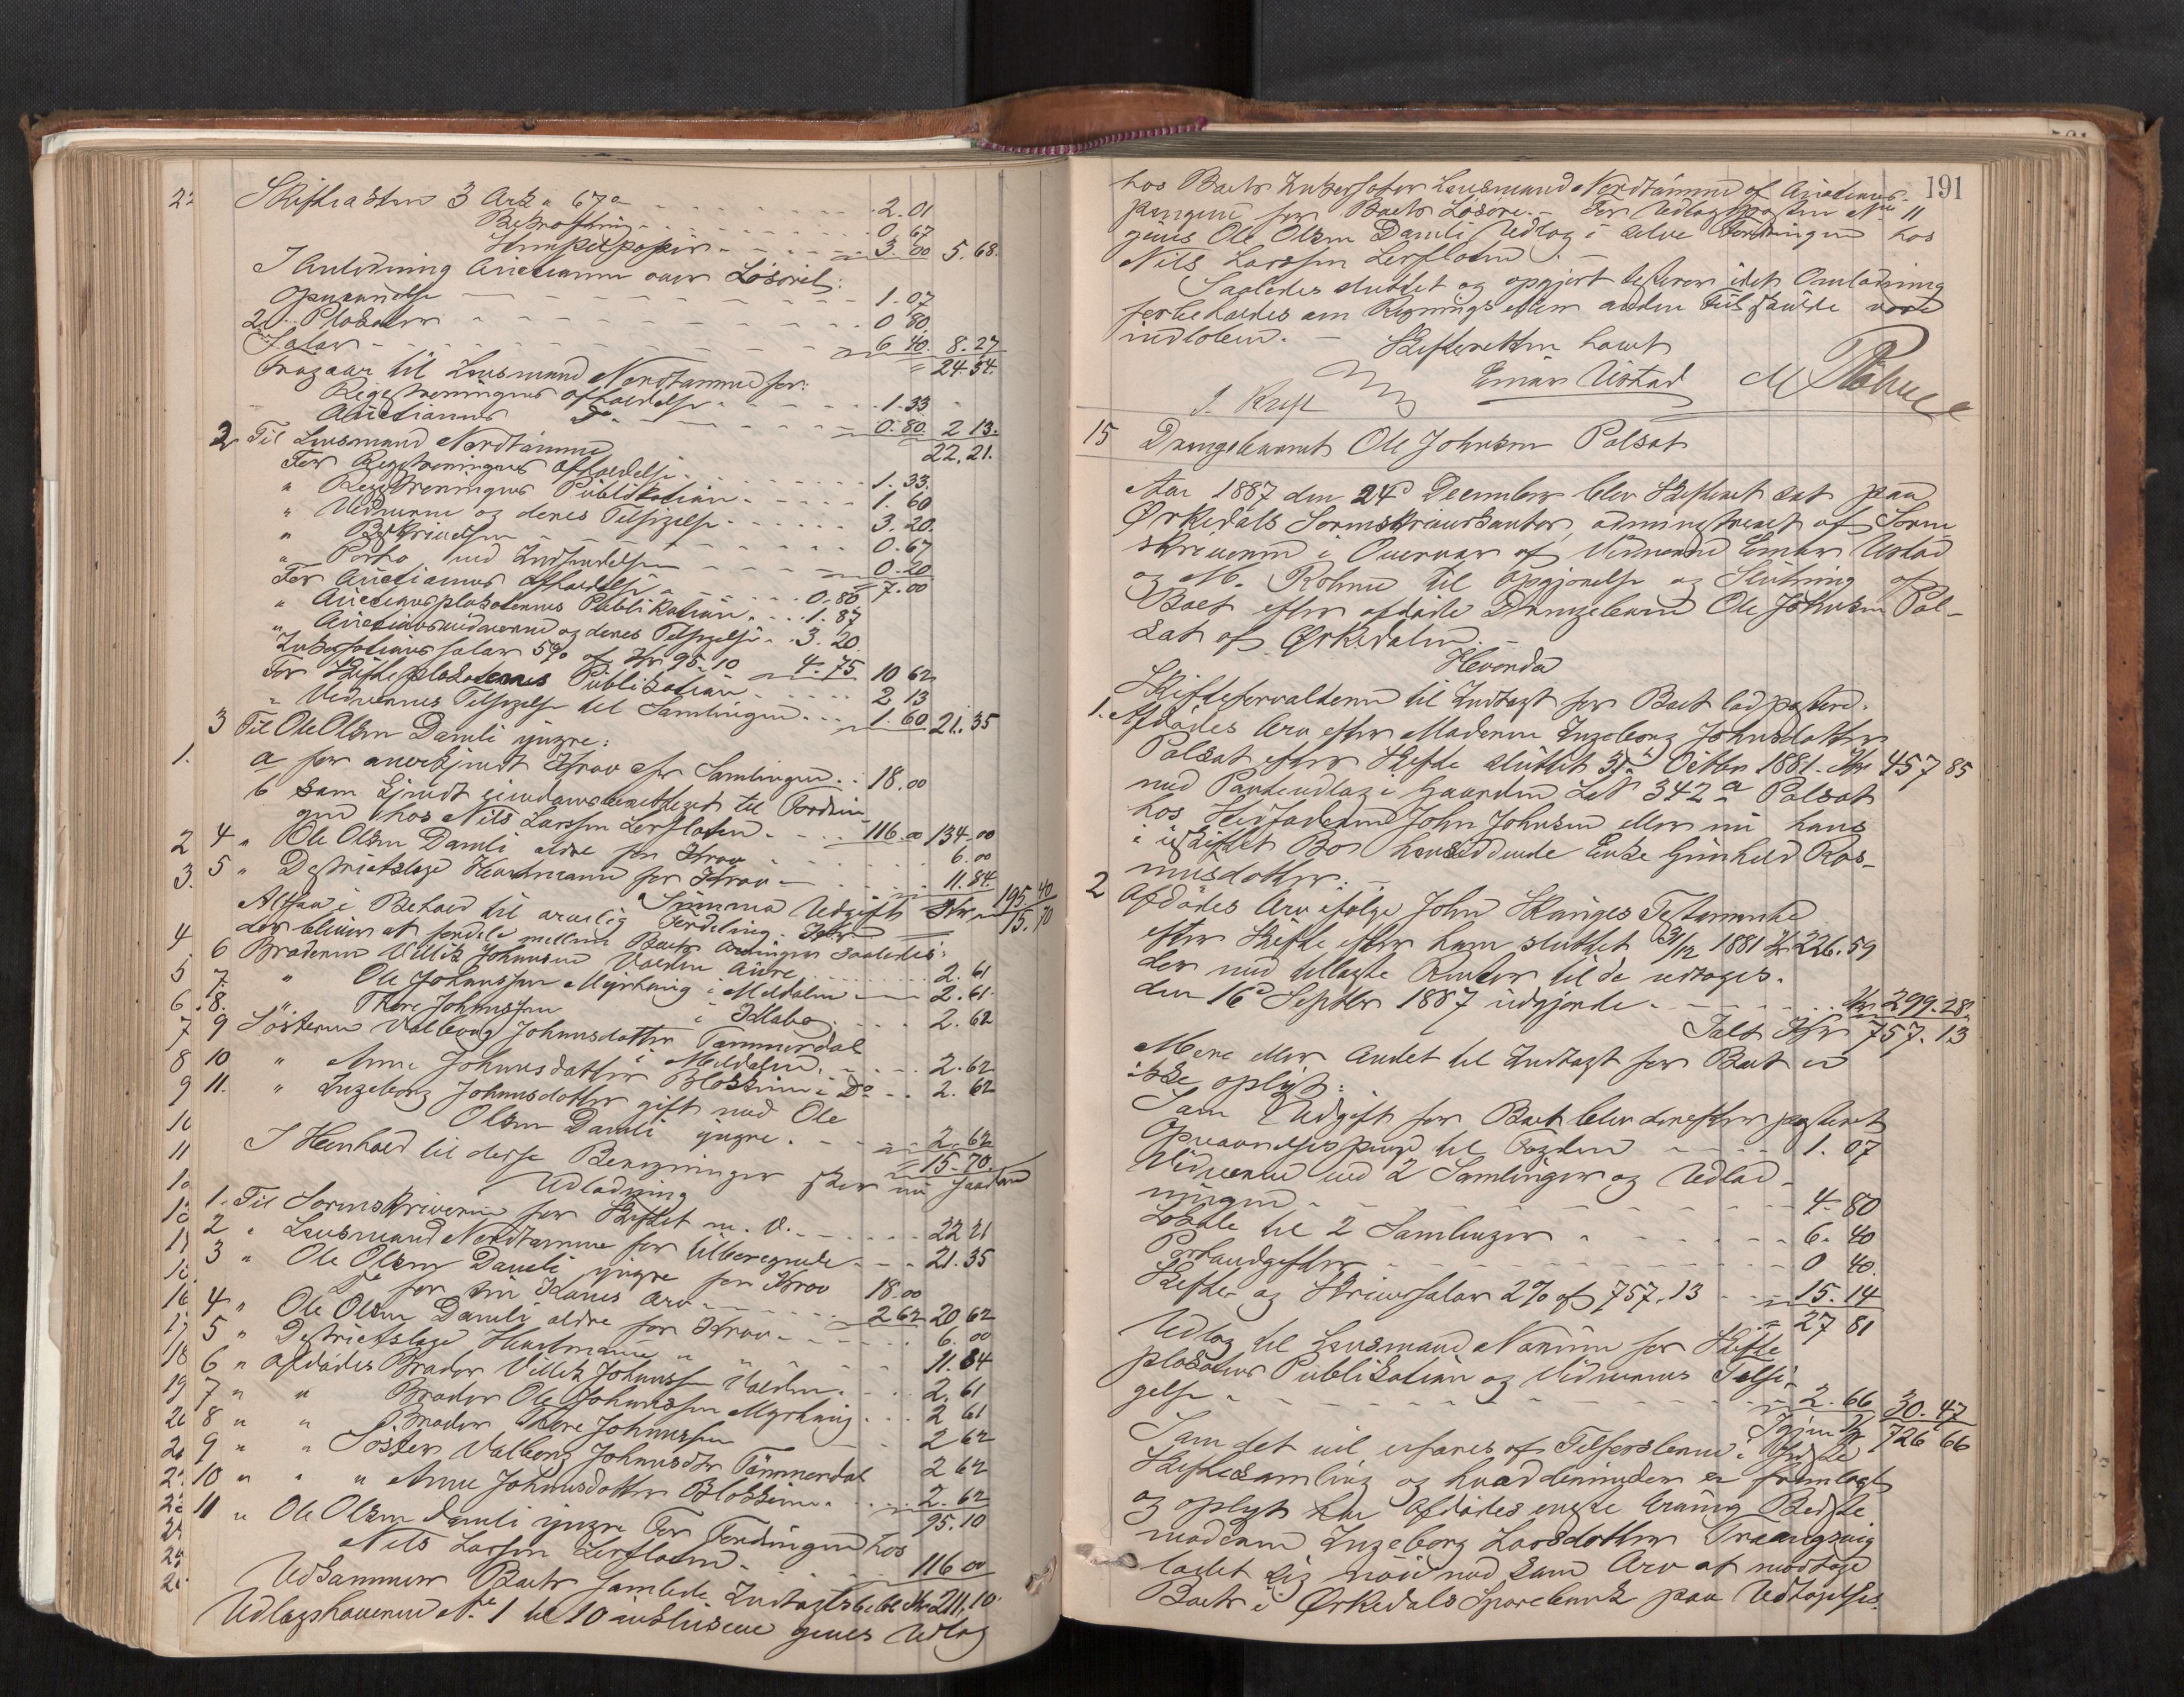 Skifteakten 3 Ark a 67 ø 2.01
Bekræftning 0.67
Stempelpapir 3.00 5.68
I Anledning Auctionen over Løsøret:
Opnævnelse 1.07
2 Plakater 0 80
Salær 6 40 8.27
24.34
Fragaar til Lensmand Nordtømme for:
Registreringens Afholdelse 1.33
Auctionens Do 0.80 2 13
22.21
2 Til Lensmand Nordtømme
For Registreringens Afholdelse 1.33
" Registreringens Publikation 1.60
" Vidnerne og deres Tilsigelse 3.20
" Beskrivelsen 0.67
" Porto ved Indsendelsen 0.20
7.00
For Auctionens Afholdelse 0.80
" Auctionsplakatens Publikation 1.87
" Auctionsvidnerne og deres Tilsigelse 3.20
Inkassations salær 5% af Kr 95.10 4.75 10 62
For Skifteplakatens Publikation 2 13
" Vidnernes Tilsigelse til Samlingen 1.60 21.35
3 Til Ole Olsen Damli yngre:
1. a for anerkjendt Krav efter Samlingen 18.00
b som kjendt eiendomsberettiget til Fordrin
gen hos Nils Larssen Lerfloen 116.00 134.00
2 4 " Ole Olsen Damli ældre for Krav 6.00
3. 5 " Distriktslæge Hartmann for Krav 11.84
Summa Udgift Kr 195.40
Altsaa i Behold til arvelig Fordeling Kr 15.70
der bliver at fordele mellem Boets Arvinger saaledes:
4 6 Broderen Villik Johnsen Volden 2.61
5 7. " Ole Johnssen Myrhaug i Meldalen 2.61
6 8. " Thore Johnssen i 2.62
7 9 Søsteren Valborg Johnsdatter Tømmerdal
i Meldalen 2.62
8 10 " Anne Johnsdatter Blokkum i Do 2.62
9 11. " Ingeborg Johnsdatter gift med Ole
10 Olsen Damli yngre 2.62
15.70
11 I Henhold til disse Beregninger sker nu saadan
Udlodning
1. Til Sorenskriveren for Skiftet m. v. 22 21
2 " Lensmand Nordtømme for tilberegnede 21.35
3 " Ole Olsen Damli yngre for Krav 18.00
Do for sin Kones Arv 2 62 20 62
4 " Ole Olsen Damli ældre for Krav 6.00
5 " Distriktslæge Hartmann " " 11.84
6 " Afdødes Broder Villik Johnssen Volden 2.61
7 " " Broder Ole Johnssen Myrhaug 2 61
8 " " Broder Thore Johnssen 2 62
9 " " Søster Valborg Johnsdtr Tømmerdal 2 62
10 " " " Anne Johnsdatter Blokkum 2.62
95.10
11 " Ole Olsen Damli yngre For Fordringen hos
Nils Larssen Lerfloen 116 00
Udkommer Boets samlede Indtægtsbeløb Kr 211.10
Udlagshaverne No 1 til 10 inklusive gives Udlæg
191
hos Boets Inkassator Lensmand Nordtømme af Auctions-
pengene for Boets Løsøre. For Udlagsposten No 11
gives Ole Olsen Damli Udlæg i selve Fordringen hos
Nils Larssen Lerfloen.
Saaledes sluttet og opgjort dersom idet Omlodning
forbeholdes om Regningsfeil eller anden Feil skulde være
indløben. Skifteretten hævet
Einar Ustad M Rohme
15 Drengebarnet Ole Johnsen Polsæt
Aar 1887 den 24d December blev Skifteret sat paa
Ørkedals Sorenskriverkontor, administreret af Soren-
skriveren i Overvær af Vidnerne Einar Ustad
og M. Rohme til Opgjørelse og Slutning af
Boet efter afdøde Drengebarn Ole Johnsen Pol-
sæt af Ørkedalen.
Hvorda
Skifteforvalteren til Indtægt for Boet lod postere.
1. Afdødes Arv efter Moderen Ingeborg Johnsdatter
Polsæt efter Skifte sluttet 31d Octbr 1881 Kr 457 85
med Panteudlæg i Gaarden Lbn 342a Polsæt
hos Stedfaderen John Johnsen eller nu hans
i uskiftet Bo hensiddende Enke Gunhild Ras-
musdatter.
2 Afdødes Arv ifølge John Skauges Testamente
efter Skifte efter ham sluttet 31/12 1881 Kr 226.59
der med tillagte Renter til de udtoges
den 16d Septbr 1887 udgjorde Kr 299.28
Ialt Kr 757.13
Mere eller Andet til Indtægt for Boet er
ikke oplyst.
Som Udgift for Boet blev derefter posteret
Opnævnelsespenge til Fogden 1.07
Vidnerne ved 2 Samlinger og Udlod-
ningen 4.80
Lokale til 2 Samlinger 6.40
Portoudgifter 0 40
Skifte- og Skriversalær 2% af 757.13 15.14
27 81
Udlæg til Lensmand for Skifte
plakatens Publikation og Vidnernes Tilsi-
gelse 2.66 30.47
Igjen Kr 726 66
Som det vil erfares af Tilførslerne i første
Skiftesamling og hvad derimod er fremlagt
og oplyst har Afdødes eneste Arving Bedste-
moderen Ingeborg Larsdatter
ladet sig nøie med som Arv at modtage
Boets i Ørkedals Sparebank paa Udtagelses-